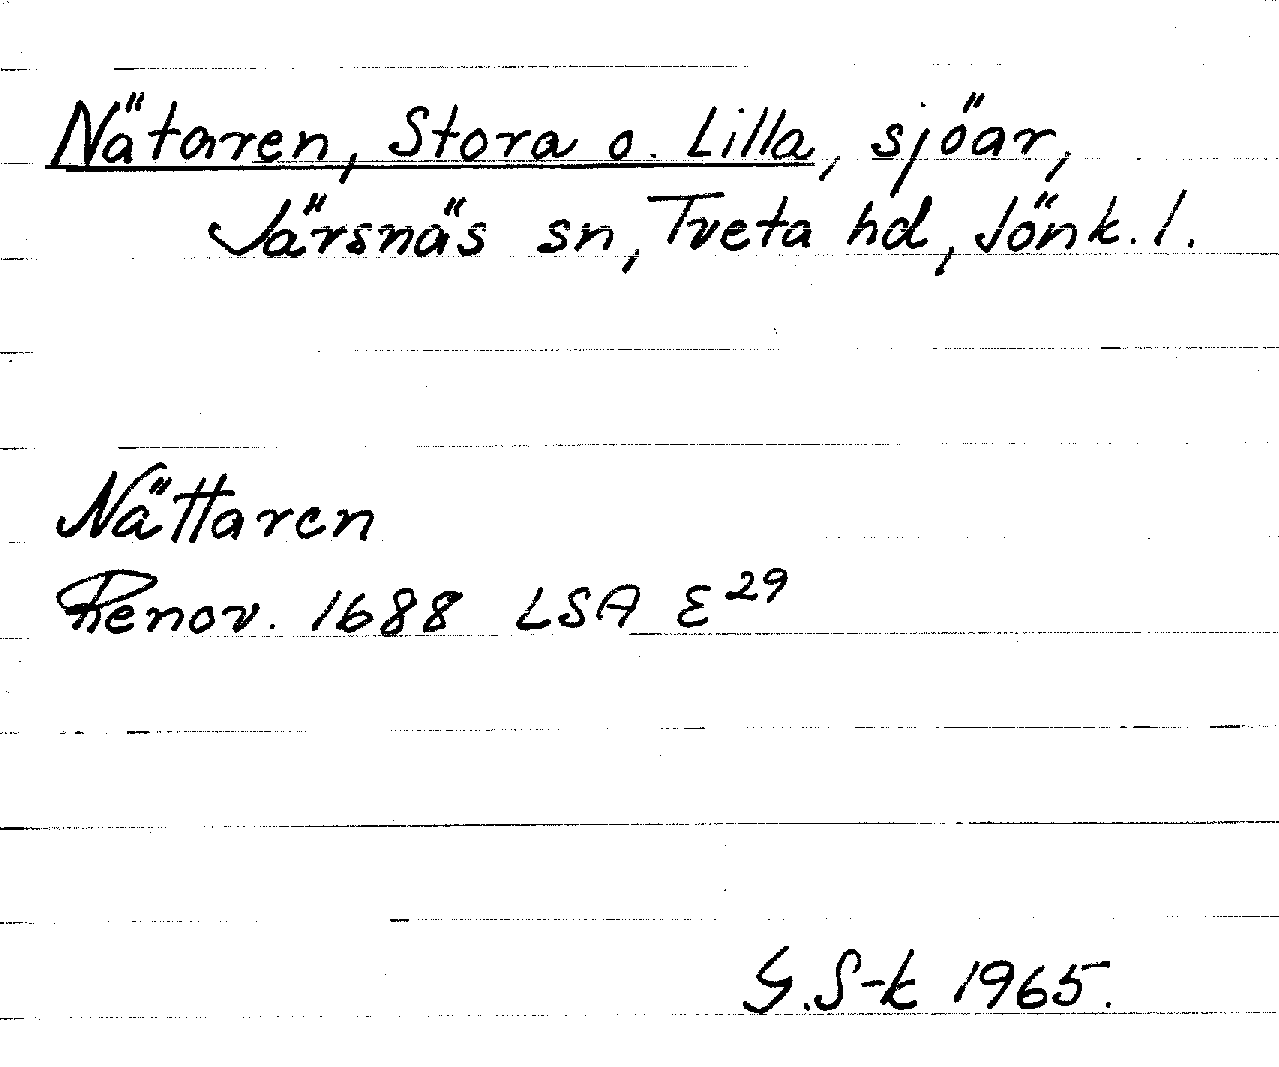 Nätaren, Stora o. Lilla, sjöar,
Järsnäs sn, Tveta hd, Jönk. l.
Nättaren
Renov. 1688 LSA E²⁹
G. S-k 1965.